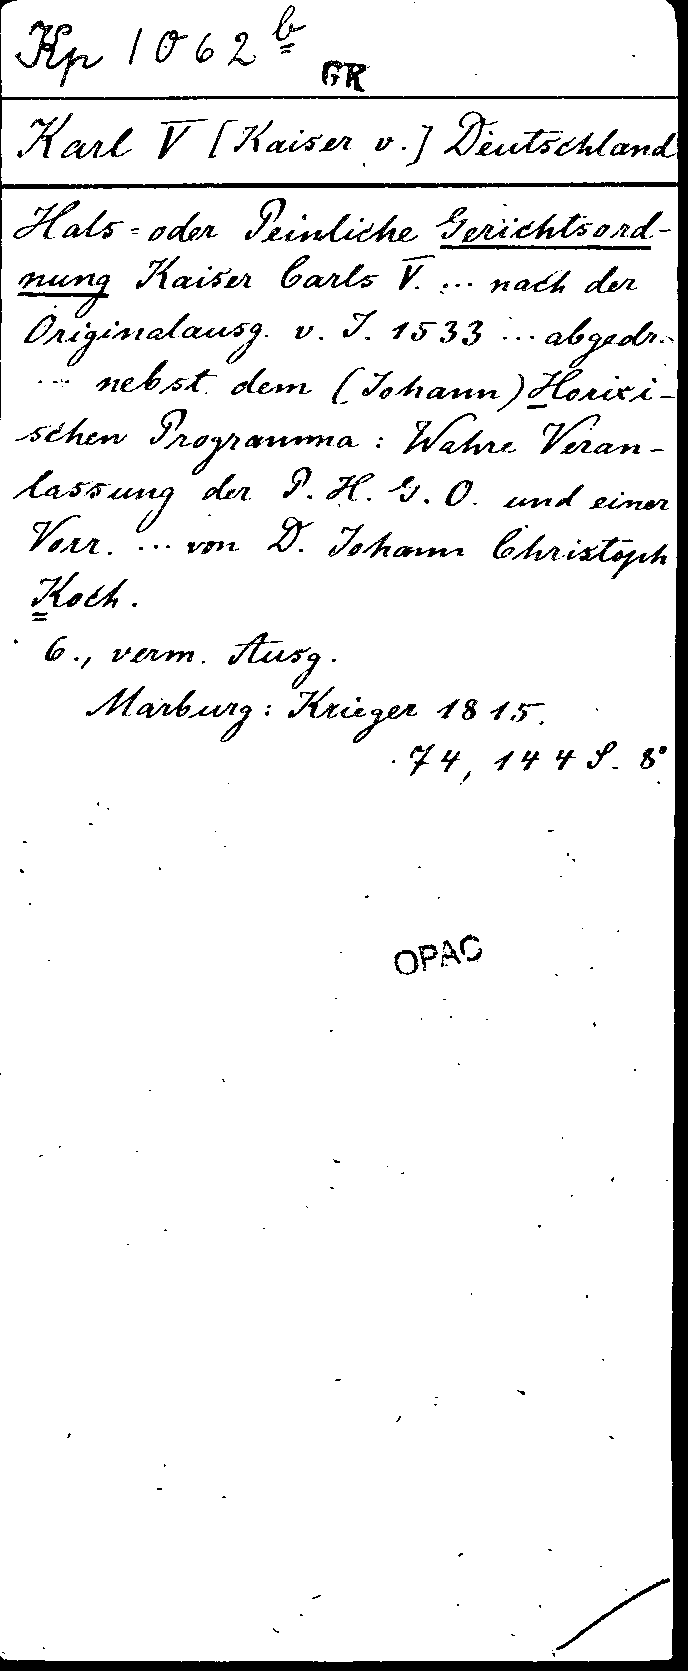 Kp 1062 b
GR
Karl V [Kaiser v.] Deutschland
Hals- oder Peinliche Gerichtsord-
nung Kaiser Carls V. ... nach der
Originalausg. v. J. 1533 ... abgedr.
... nebst dem (Johann) Horixi-
schen Programma: Wahre Veran-
lassung der P. H. G. O. und einer
Vorr. ... von D. Johann Christoph
Koch.
6., verm. Ausg.
Marburg: Krieger 1815.
74, 144 S. 8°
OPAC